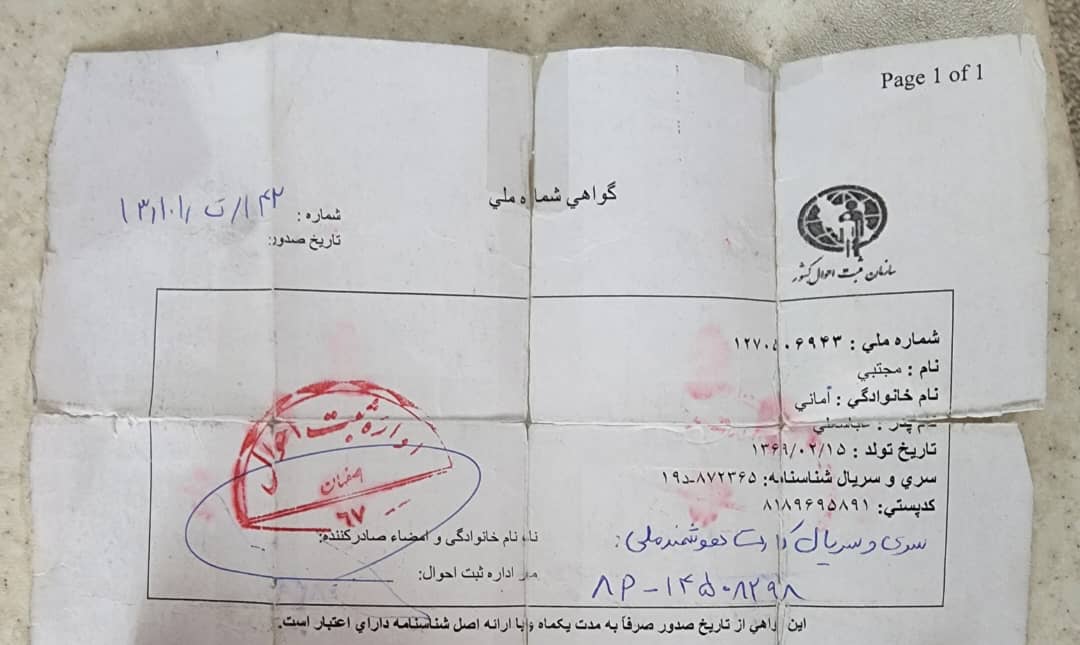 Page 1 of 1
گواهي شماره ملي
شماره : ۱۴۲/ت/۱۳/۱۰۱
تاریخ صدور:
سازمان ثبت احوال کشور
شماره ملي : ۱۲۷۰۵۰۶۹۴۳
نام : مجتبي
نام خانوادگي : أماني
نام پدر :
تاریخ تولد : ۱۳۶۹/۰۲/۱۵
سري و سریال شناسنامه: ۸۷۲۳۶۵-۱۹د
کدپستي: ۸۱۸۹۶۹۵۸۹۱
سری و سریال کارت هوشمند ملی :
۸P-۱۴۵۰۸۲۹۸
اداره ثبت احوال
اصفهان
۶۷
نام خانوادگی و امضاء صادرکننده:
مهر اداره ثبت احوال:
این گواهي از تاریخ صدور صرفاً به مدت یکماه و با ارائه اصل شناسنامه داراي اعتبار است.